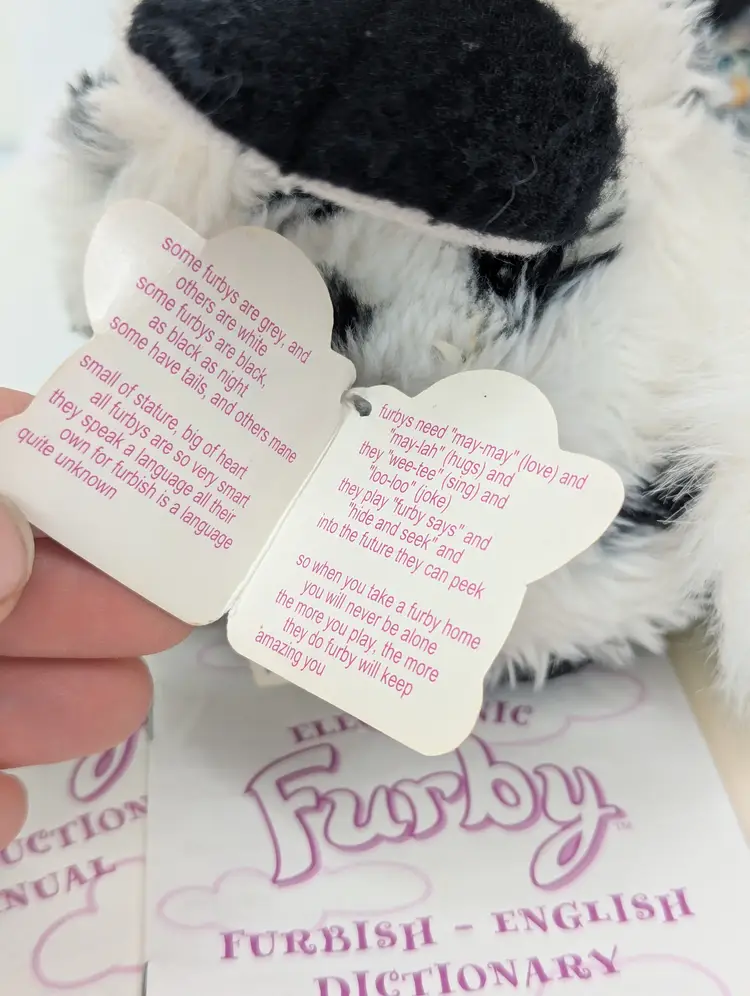 some furbys are grey, and
others are white
some furbys are black,
as black as night
some have tails, and others mane
small of stature, big of heart
all furbys are so very smart
they speak a language all their
own for furbish is a language
quite unknown
furbys need "may-may" (love) and
"may-lah" (hugs) and
they "wee-tee" (sing) and
"loo-loo" (joke)
they play "furby says" and
"hide and seek" and
into the future they can peek
so when you take a furby home
you will never be alone
the more you play, the more
they do furby will keep
amazing you
Furby™
FURBISH - ENGLISH
DICTIONARY